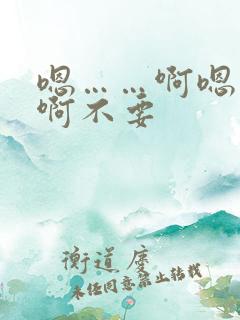 嗯……啊嗯
啊不要
衡道度
未经同意禁止转载